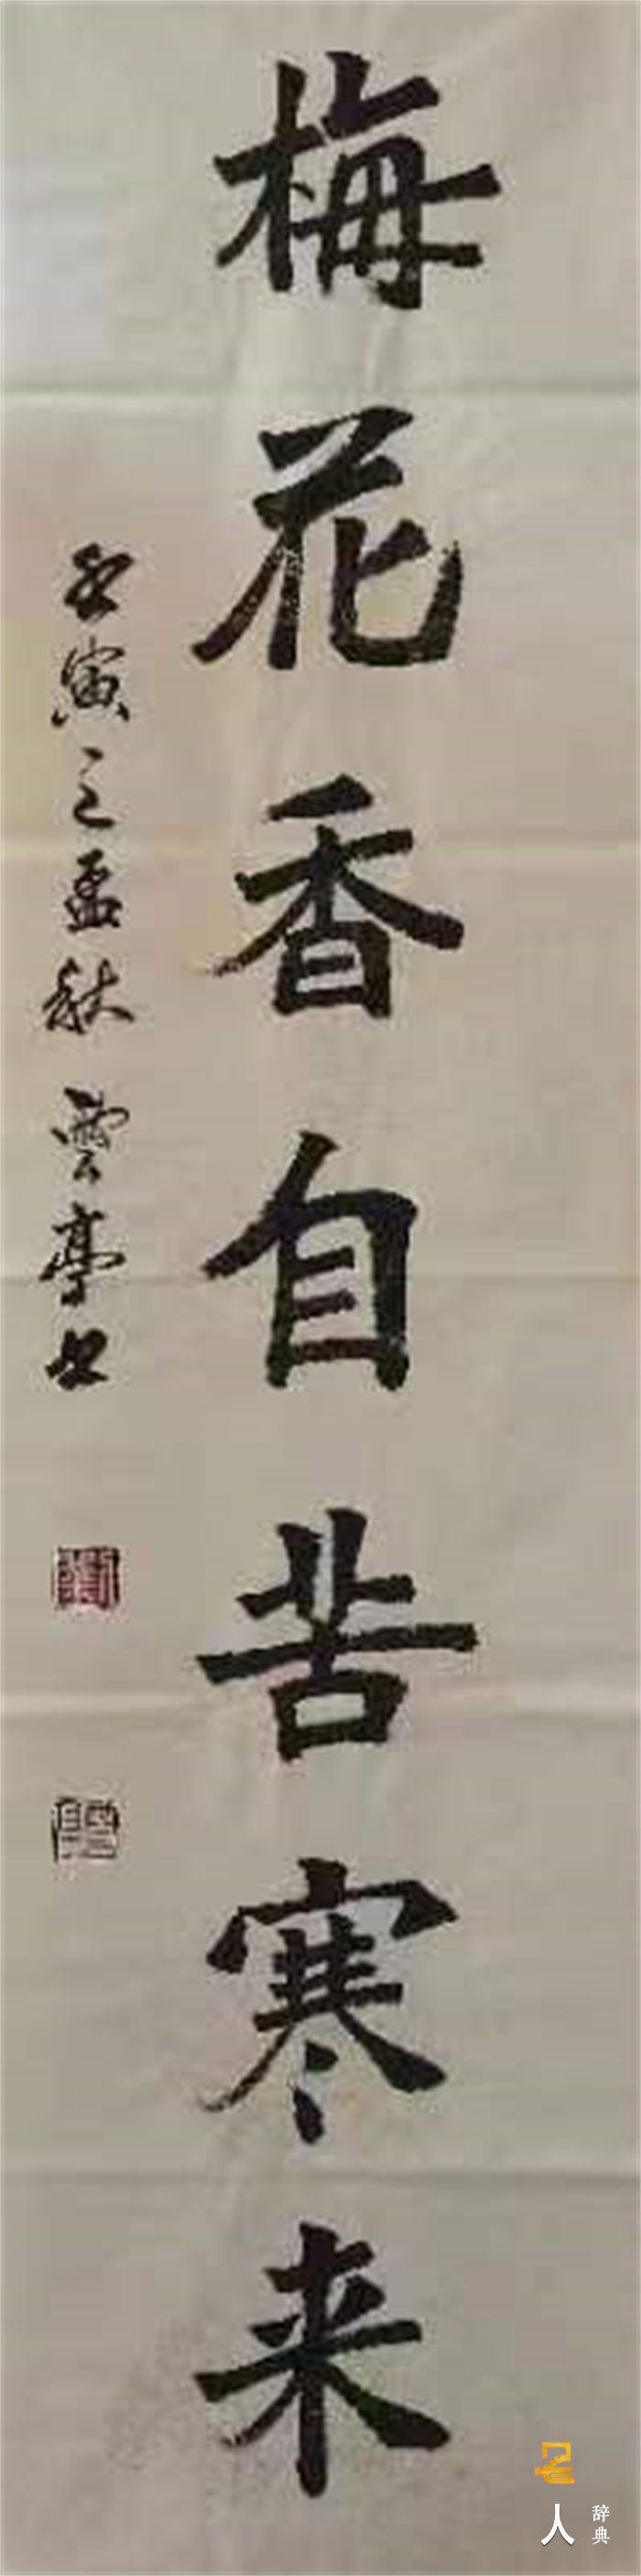 梅花香自苦寒来
壬寅之孟秋 雲亭书
名人
辞典